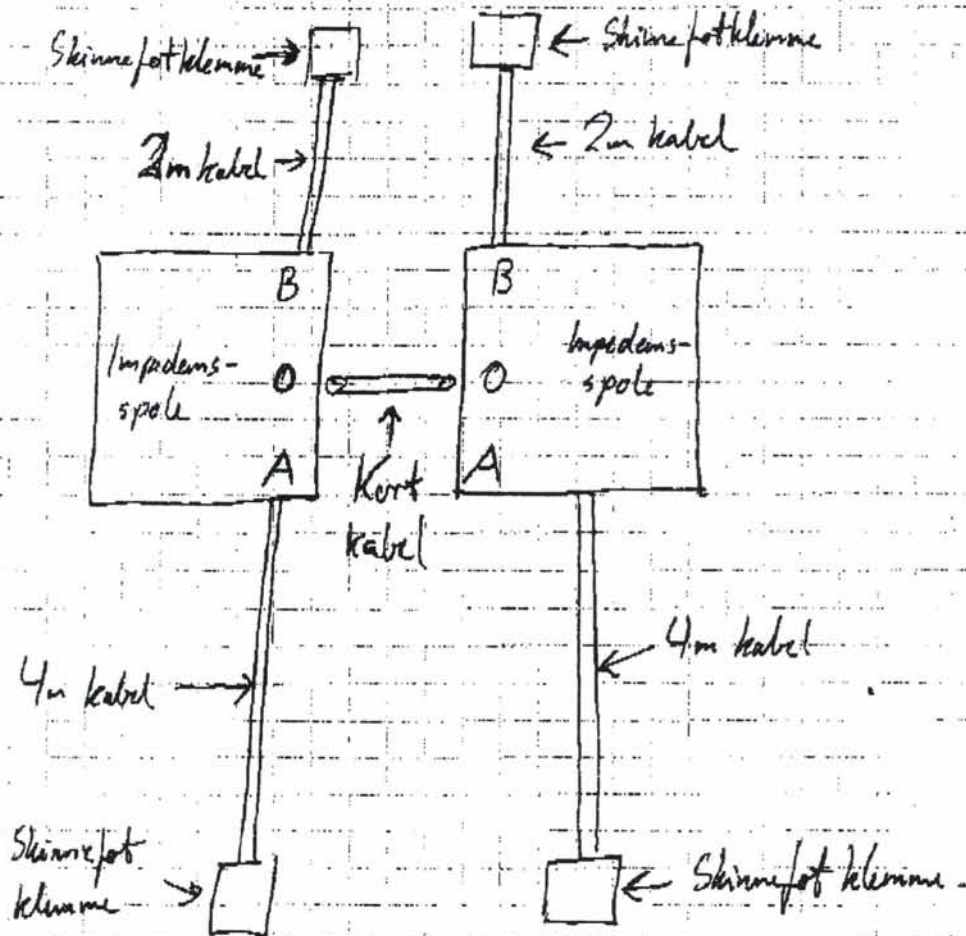 Skinnefotklemme
Skinnefotklemme
2m kabel
2m kabel
B
B
Impedans-
spole
O
O
Impedans-
spole
A
A
Kort
kabel
4m kabel
4m kabel
Skinnefot
klemme
Skinnefot klemme